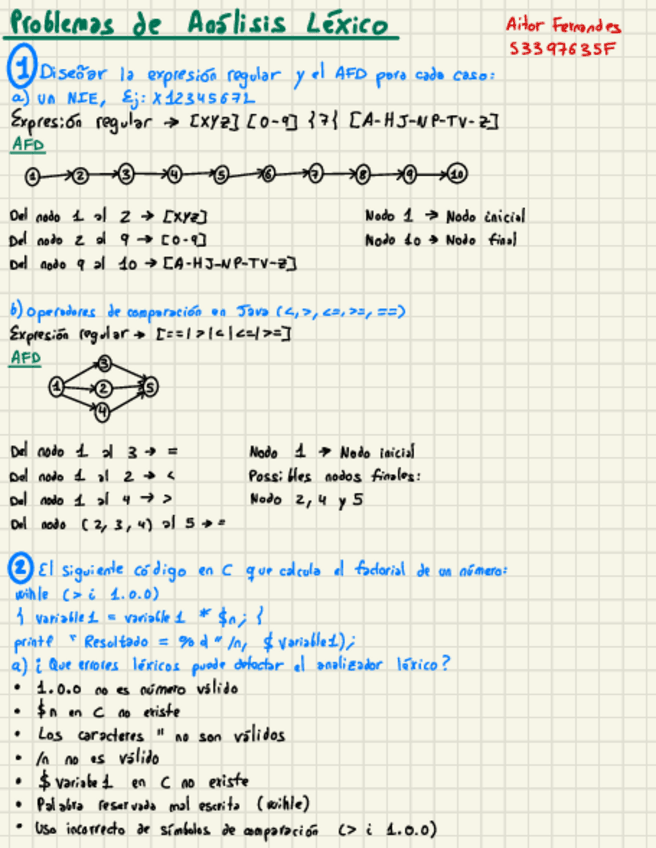 Problemas de Análisis Léxico
Aitor Fernandes
53397635F
1 Diseñar la expresión regular y el AFD para cada caso:
a) un NIE, Ej: X1234567L
Expresión regular → [XYZ] [0-9] {7} [A-HJ-NP-TV-Z]
AFD
1 2 3 4 5 6 7 8 9 10
Del nodo 1 al 2 → [XYZ]
Nodo 1 → Nodo inicial
Del nodo 2 al 9 → [0-9]
Nodo 10 → Nodo final
Del nodo 9 al 10 → [A-HJ-NP-TV-Z]
b) Operadores de comparación en Java (<,>,<=,>=,==)
Expresión regular → [==|>|<|<=|>=]
AFD
3
1 2 5
4
Del nodo 1 al 3 → =
Nodo 1 → Nodo inicial
Del nodo 1 al 2 → <
Possibles nodos finales:
Del nodo 1 al 4 → >
Nodo 2, 4 y 5
Del nodo (2, 3, 4) al 5 → =
2 El siguiente código en C que calcula el factorial de un número:
wihle (> i 1.0.0)
} variable1 = variable1 * $n; {
printf " Resultado = %d" /n, $variable1);
a) ¿Que errores léxicos puede detectar el analizador léxico?
• 1.0.0 no es número válido
• $n en C no existe
• Los caracteres " no son válidos
• /n no es válido
• $variable1 en C no existe
• Palabra reservada mal escrita (wihle)
• Uso incorrecto de símbolos de comparación (> i 1.0.0)